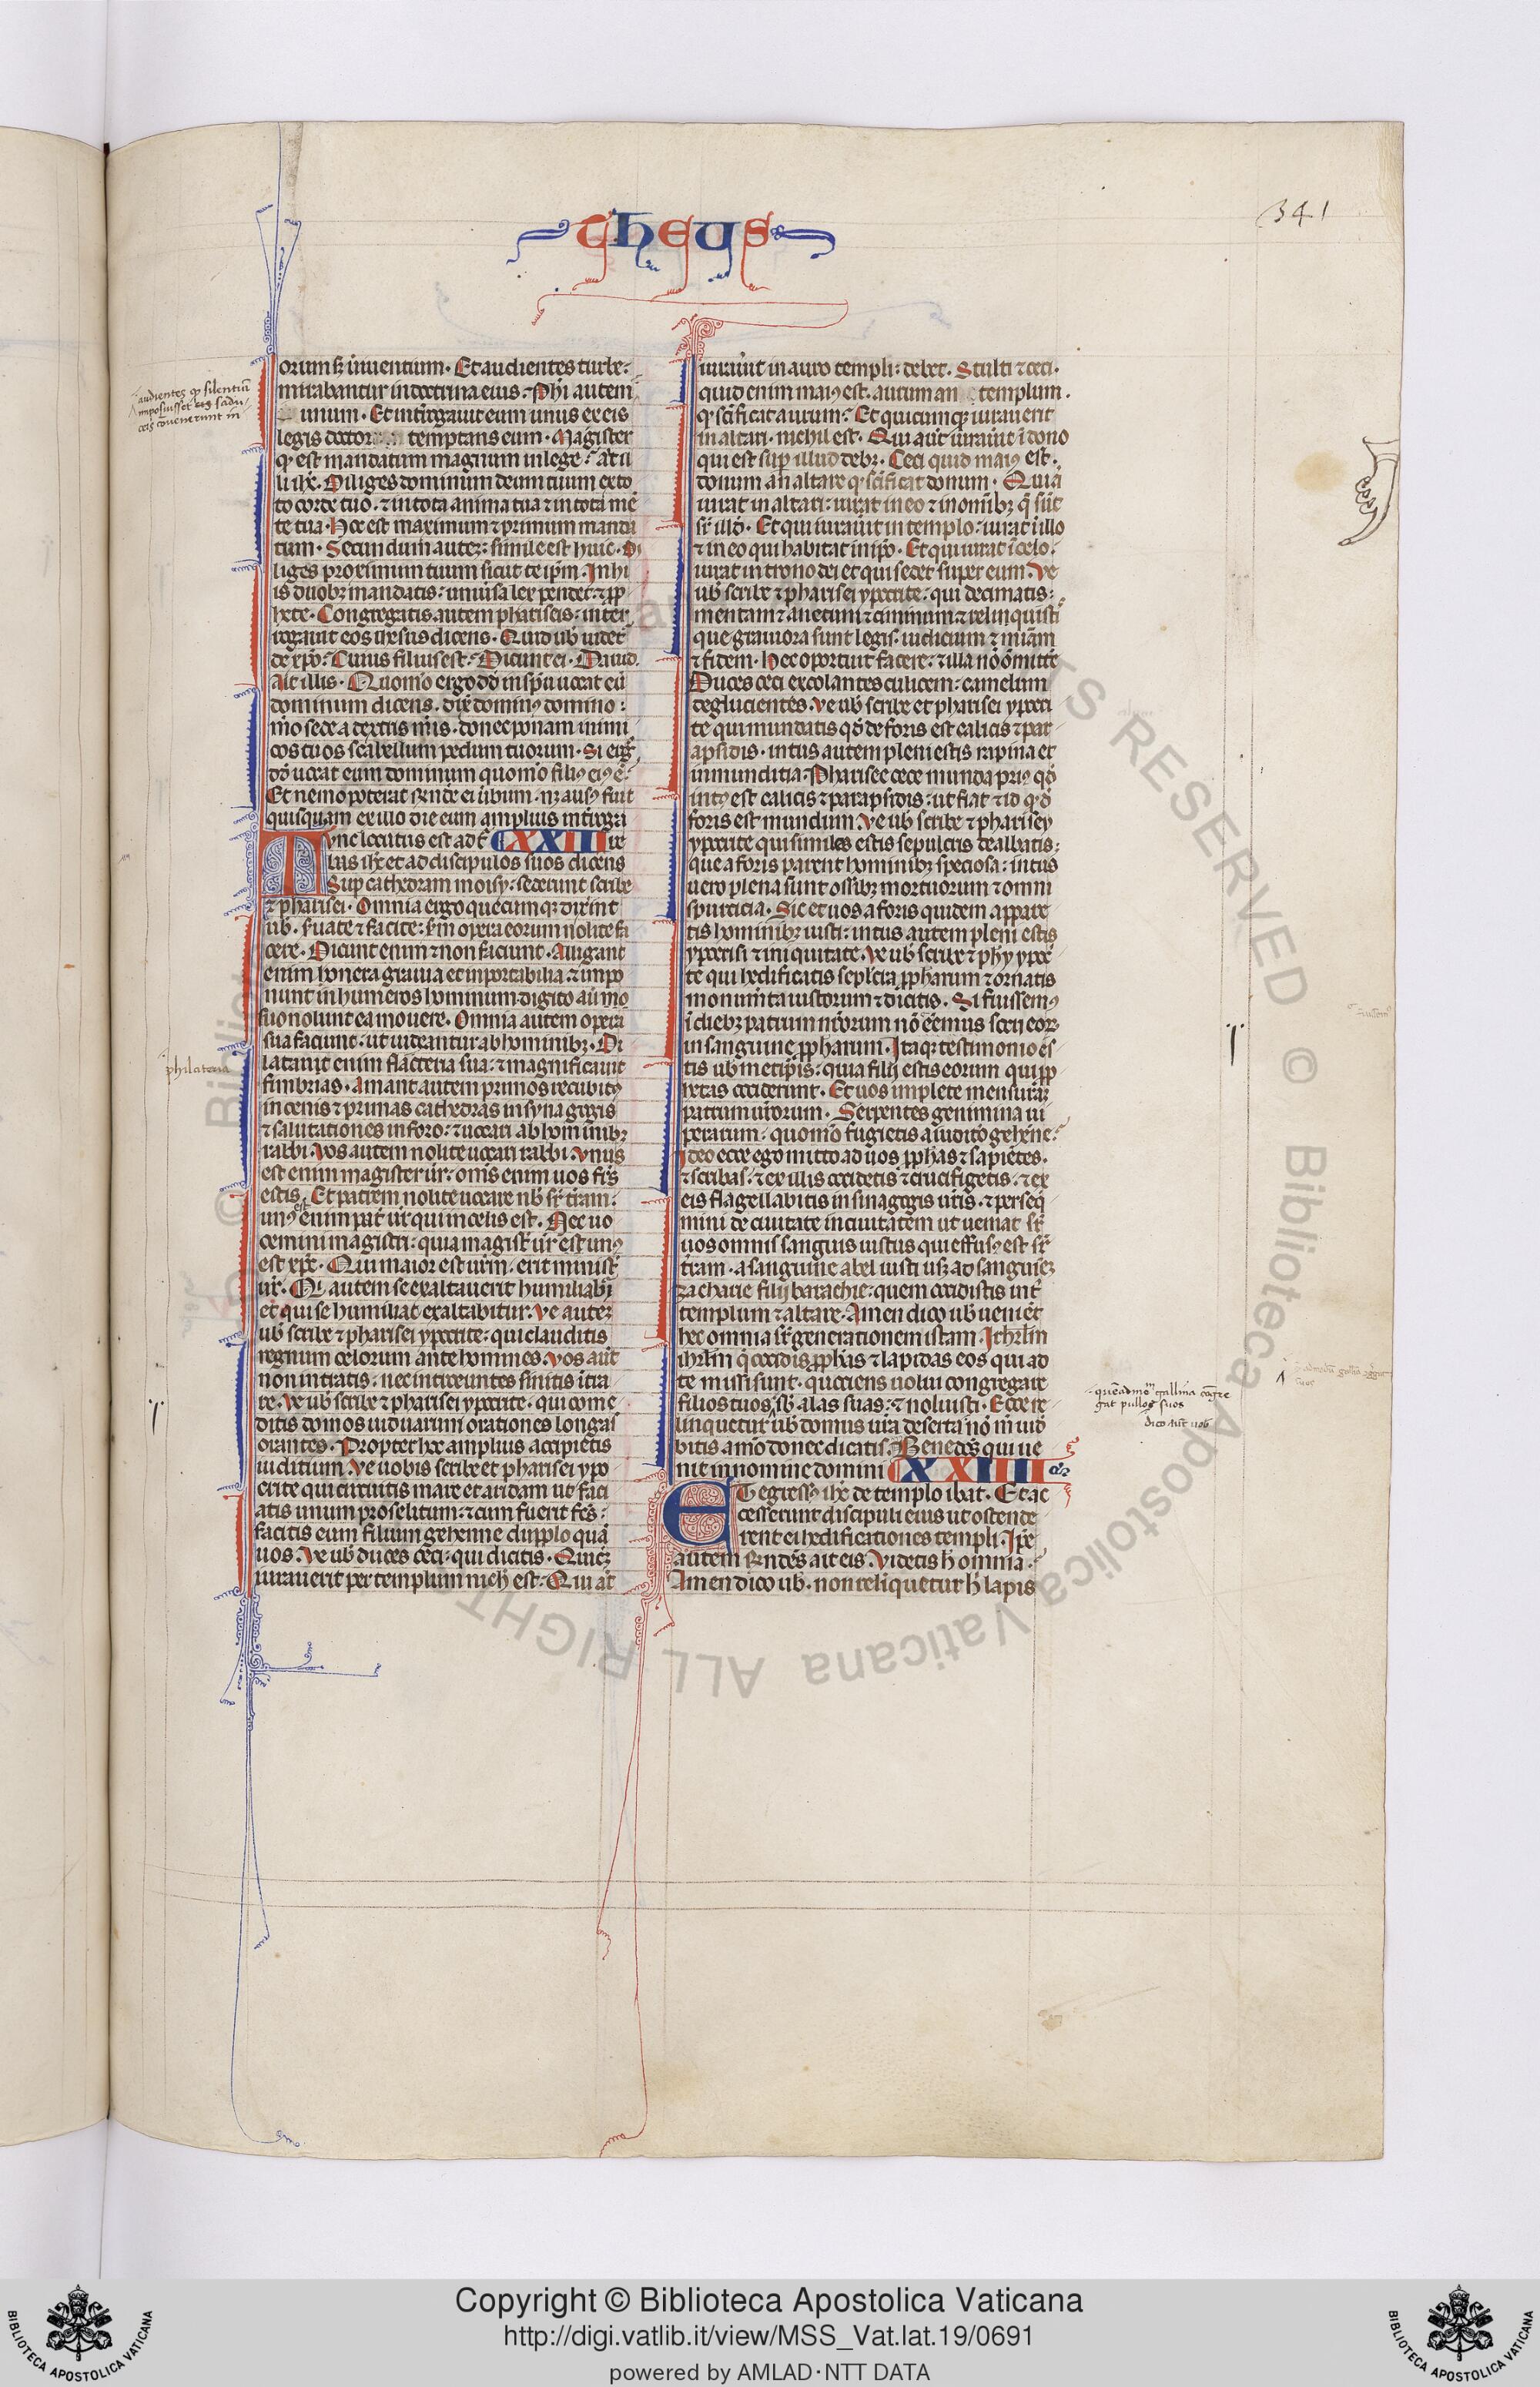 theus
341
orum sed inuentium · Et audientes turbe:
mirabantur in doctrina eius · Phi autem
unum · Et int̾rogauit eum unus ex eis
legis doctor temptans eum · Magister
q̾ est mandatum magnum in lege · ait il
li ih̾c · Diliges dominum deum tuum ex to
to corde tuo · ⁊ in tota anima tua ⁊ in tota mē
te tua · Hoc est maximum ⁊ primum manda
tum · Secundum autez: simile est huic · Di
liges proximum tuum sicut te ip̄m · In hi
is duobꝫ mandatis: uniu̾sa lex pendet: ⁊ ꝓp
hete · Congregatis autem phariseis: inter
rogauit eos ihesus dicens · Quid uob̾ uidet̾
de xp̄o: Cuius filius est: Dicunt ei · Dauid.
Ait illis · Quom̊o ergo dd̾ in sp̄u uocat eū
dominum dicens · dix̾ dominꝰ domino:
m̊o sede a dextris m̾is · donec ponam inimi
cos tuos scabellum pedum tuorum · Si erg̊
dd̾ uocat eum dominum quom̊o filiꝰ eiꝰ ē:
Et nemo poterat r̄ndē ei u̾bum · nꝫ ausꝰ fuit
quisquam ex illo die eum amplius int̾roga
Tunc locutus est ad t̾ XXIII re
bas ih̾c et ad discipulos suos dicens
Sup cathedram moisy: sederunt scribe
⁊ pharisei · Omnia ergo quecumqꝫ dixint
uob̾ · s̾uate ⁊ facite: s̄m opera eorum nolite fa
cere · Dicunt enim ⁊ non faciunt · Alligant
enim honera grauia et inportabilia ⁊ impo
nunt in humeros hominum digito aū mo
suo nolunt ea mouere · Omnia autem opera
sua faciunt: ut uideantur ab hominibꝫ · Di
latant enim flacteria sua: ⁊ magnificant
fimbrias · Amant autem primos recubitꝰ
in cenis ⁊ primas cathedras in synagogis
⁊ salutationes in foro: ⁊ uocari ab hominibꝫ
rabbi · Vos autem nolite uocari rabbi · Vnus
est enim magister ur̄: om̄s enim uos fr̄s
estis · Et patrem nolite uocare uob̾ sr̄ tr̄am:
unꝰ est enim pat̾ ur̄ qui in celis est · Nec uo
cemini magistri: quia magist̾ ur̄ est unꝰ
est xp̄c · Qui maior est ur̄m · erit minist̾
ur̄ · Qi autem se exaltauerit humiliabit̾
et qui se humiliat exaltabitur · Ve autez
uob̾ scribe ⁊ pharisei ypocrite: qui clauditis
regnum celorum ante homines · Vos aut̄
non intratis · nec introeuntes sinitis ītra
re · Ve uob̾ scribe ⁊ pharisei ypocrite · qui come
ditis domos uiduarum orationes longas
orantes · Propter hoc amplius accipietis
iuditium · Ve uobis scribe et pharisei ypo
crite qui circuitis mare et aridam ut faci
atis unum proselitum: ⁊ cum fuerit fc̄s:
facitis eum filium gehenne dupplo quā
uos · Ve uob̾ duces ceci · qui dicitis · Quicꝫ
iurauerit per templum nich̾ est · Qui at̄
iurau̾it in auro templi: debet · Stulti ⁊ ceci ·
quid enim maiꝰ est · aurum an templum ·
q̾ sc̄ificat aurum: Et quicumqꝫ iurauerit
in altari · nichil est · Qui aut̄ iurau̾it ī dono
qui est sup̾ illud debꝫ · Ceci quid maiꝰ est ·
donum an altare q̾ sc̄ificat donum · Quia
iurat in altari: iurat in eo ⁊ in om̄ibꝫ q̄ sūt
sr̄ illd̾ · Et qui iurau̾it in templo: iurat ī illo
⁊ in eo qui habitat in ip̄o · Et qui iurat ī celo ·
iurat in trono dei et qui sedet super eum · Ve
uob̾ scribe ⁊ pharisei ypocrite: qui decimatis:
mentam ⁊ anetum ⁊ ciminum ⁊ relinquisti
que grauiora sunt legis · iudicium ⁊ mi̅am
⁊ fidem · Hec oportuit facere: ⁊ illa nō omitt̾e
Duces ceci excolantes culicem: camelum
deglucientes · Ve uob̾ scribe et pharisei ypocri
te qui mundatis qd̾ de foris est calicis ⁊ par
apsidis · intus autem pleni estis rapina et
inmunditia · Pharisee cece munda priꝰ qd̾
intꝰ est calicis ⁊ parapsidis: ut fiat ⁊ id qd̾
foris est mundum · Ve uob̾ scribe ⁊ pharisey
ypocrite qui similes estis sepulcris dealbatis:
que a foris parent hominibꝫ speciosa: intus
uero plena sunt ossibꝫ mortuorum ⁊ omni
spurcicia · Sic et uos a foris quidem appare
tis hominibꝫ iusti: intus autem pleni estis
ypocrisi ⁊ iniquitate · Ve uob̾ scribe ⁊ phy ypoc̾
te qui hedificatis sepulcra ꝓpharum ⁊ ornatis
monum̄ta iustorum ⁊ dicitis · Si fuissemꝰ
ī diebꝫ patrum nr̄orum nō eēmus socij eor̄
in sanguine ꝓpharum · Itaqꝫ testimonio es
tis uob̾ metip̄is: quia filij estis eorum qui ꝓp
hetas occiderunt · Et uos implete mensurā
patrum ur̄orum · Serpentes genimina ui
perarum: quom̊o fugietis a iudito gehēne:
Ideo ecce ego mitto ad uos ꝓphas ⁊ sapiētes ·
⁊ scribas: ⁊ ex illis occidetis ⁊ crucifigetis: ⁊ ex
eis flagellabitis in sinagogis ur̄is · ⁊ perseq̄
mini de ciuitate in ciuitatem ut ueniat sr̄
uos omnis sanguis iustus qui effusꝰ est sr̄
tr̄am · a sanguine abel iusti usꝫ ad sanguiez
zacharie filij barachie: quem occidistis int̾
templum ⁊ altare · Amen dico uob̾ uenīet
hec omnia sr̄ generationem istam · Ihrl̄m
ihrl̄m q̄ occidis ꝓphas ⁊ lapidas eos qui ad
te missi sunt · quociens uolui congregare
filios tuos sb̾ alas suas: ⁊ noluisti · Ecce re
linquetur uob̾ domus ur̄a deserta nō m̄ uid̾
bitis amod̊o donec dicatis · Benedcs̄ qui ue
nit in nomine domini XXIIII
ET egressꝰ ih̾c de templo ibat · Et ac
cesserunt discipuli eius ut ostende
rent ei hedificationes templi · Ip̄e
autem r̄ndēs ait eis · Videtis h̾ omnia ·
Amen dico uob̾ · non relinquetur h̾ lapis
audientes q̾ silentiū
imposuisset eis sadu
ceis cōuenerunt in
philateria
queadmo̅ gallina cōgre
gat pullos suos
dico aut̄ uob̾
Copyright © Biblioteca Apostolica Vaticana
http://digi.vatlib.it/view/MSS_Vat.lat.19/0691
powered by AMLAD·NTT DATA
BIBLIOTECA APOSTOLICA VATICANA
BIBLIOTECA APOSTOLICA VATICANA